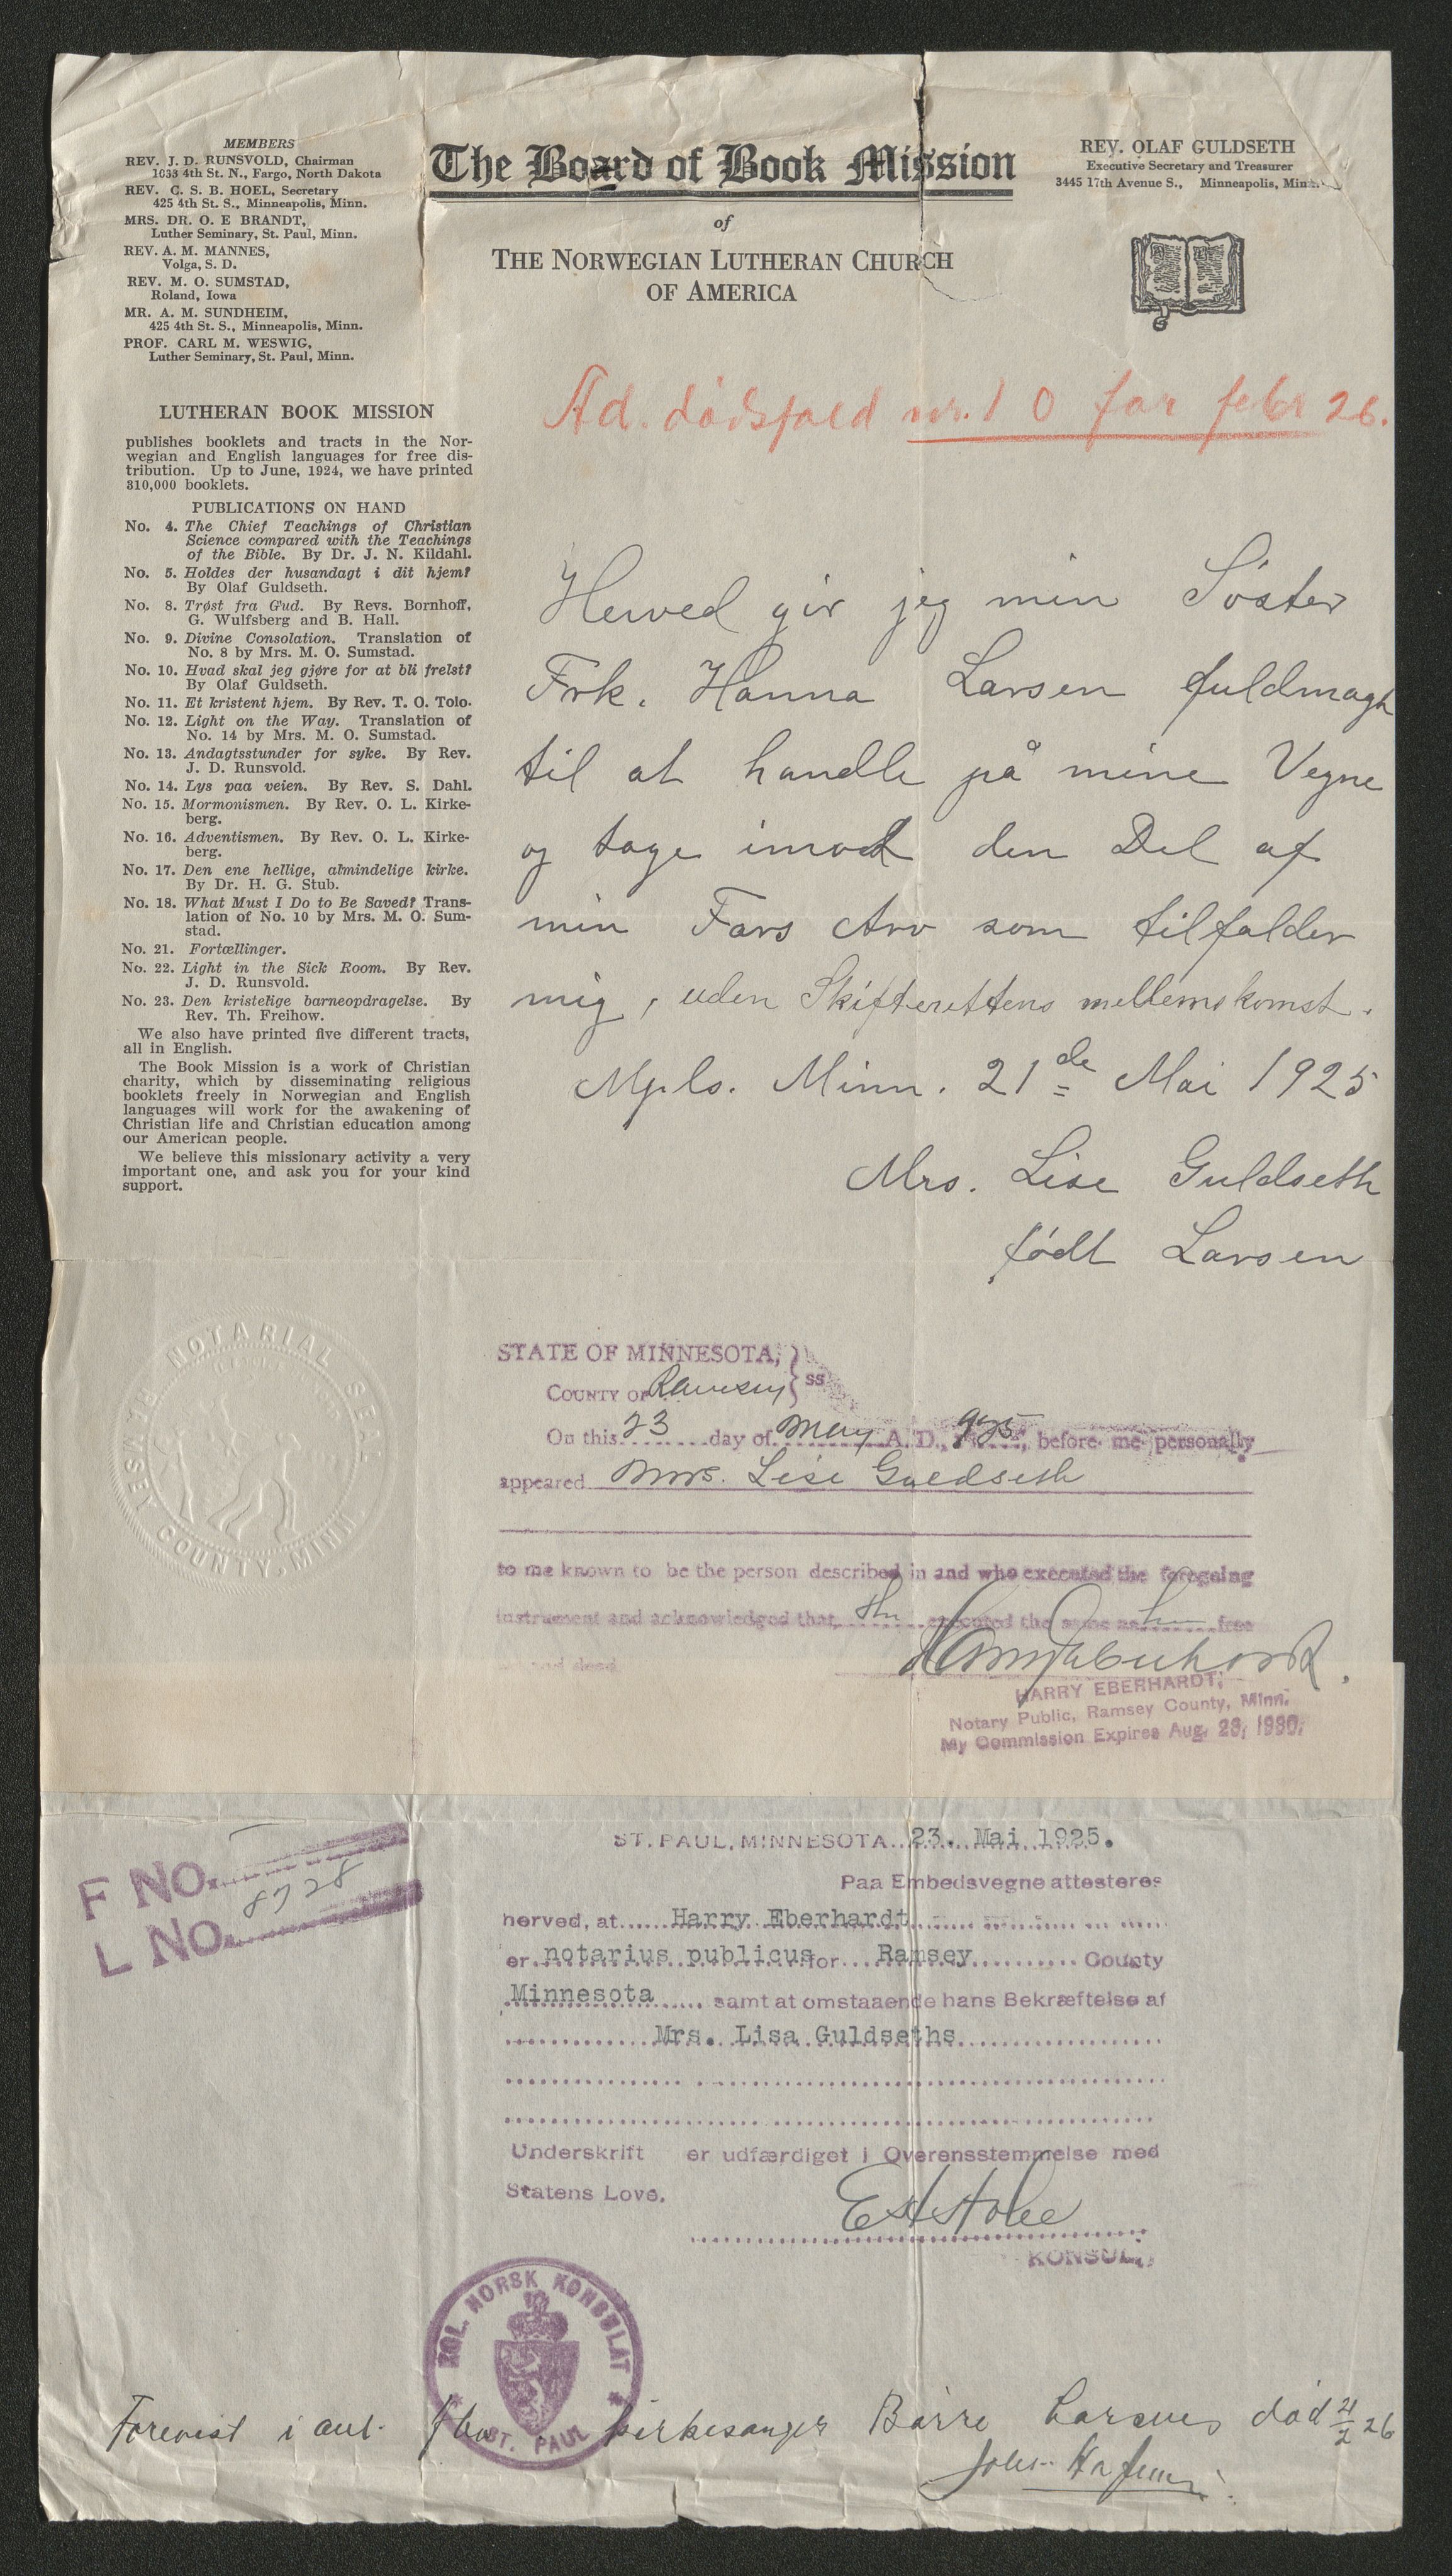 MEMBERS
REV. J. D. RUNSVOLD, Chairman
1033 4th St. N., Fargo, North Dakota
REV. C. S. B. HOEL, Secretary
425 4th St. S., Minneapolis, Minn.
MRS. DR. O. E BRANDT,
Luther Seminary, St. Paul, Minn.
REV. A. M. MANNES,
Volga, S. D.
REV. M. O. SUMSTAD,
Roland, Iowa
MR. A. M. SUNDHEIM,
425 4th St. S., Minneapolis, Minn.
PROF. CARL M. WESWIG,
Luther Seminary, St. Paul, Minn.
The Board of Book Mission
of
THE NORWEGIAN LUTHERAN CHURCH
OF AMERICA
REV. OLAF GULDSETH
Executive Secretary and Treasurer
3445 17th Avenue S., Minneapolis, Minn.
LUTHERAN BOOK MISSION
publishes booklets and tracts in the Nor-
wegian and English languages for free dis-
tribution. Up to June, 1924, we have printed
310,000 booklets.
PUBLICATIONS ON HAND
No. 4. The Chief Teachings of Christian
Science compared with the Teachings
of the Bible. By Dr. J. N. Kildahl.
No. 5. Holdes der husandagt i dit hjem?
By Olaf Guldseth.
No. 8. Trøst fra Gud. By Revs. Bornhoff,
G. Wulfsberg and B. Hall.
No. 9. Divine Consolation. Translation of
No. 8 by Mrs. M. O. Sumstad.
No. 10. Hvad skal jeg gjøre for at bli frelst?
By Olaf Guldseth.
No. 11. Et kristent hjem. By Rev. T. O. Tolo.
No. 12. Light on the Way. Translation of
No. 14 by Mrs. M. O. Sumstad.
No. 13. Andagtsstunder for syke. By Rev.
J. D. Runsvold.
No. 14. Lys paa veien. By Rev. S. Dahl.
No. 15. Mormonismen. By Rev. O. L. Kirke-
berg.
No. 16. Adventismen. By Rev. O. L. Kirke-
berg.
No. 17. Den ene hellige, almindelige kirke.
By Dr. H. G. Stub.
No. 18. What Must I Do to Be Saved? Trans-
lation of No. 10 by Mrs. M. O. Sum-
stad.
No. 21. Fortællinger.
No. 22. Light in the Sick Room. By Rev.
J. D. Runsvold.
No. 23. Den kristelige barneopdragelse. By
Rev. Th. Freihow.
We also have printed five different tracts,
all in English.
The Book Mission is a work of Christian
charity, which by disseminating religious
booklets freely in Norwegian and English
languages will work for the awakening of
Christian life and Christian education among
our American people.
We believe this missionary activity a very
important one, and ask you for your kind
support.
Ad. dødsfald nr. 10 for febr 26.
Herved gir jeg min Søster
Frk. Hanna Larsen fuldmagt
til at handle på mine Vegne
og tage imod den Del af
min Fars Arv som tilfalder
mig, uden Skifterettens mellemskomst.
Mpls. Minn. 21de Mai 1925
Mrs. Lise Guldseth
født Larsen
NOTARIAL SEAL
COUNTY, MINN.
STATE OF MINNESOTA, } ss
COUNTY OF Ramsey
On this 23 day of May A. D., 925, before me personally
appeared Mrs. Lise Guldseth
to me known to be the person described in and who executed the foregoing
instrument and acknowledged that she executed the same as her free
and deed
HARRY EBERHARDT,
Notary Public, Ramsey County, Minn.
My Commission Expires Aug. 23, 1930.
F NO.
8728
L NO.
ST. PAUL, MINNESOTA. 23. Mai 1925.
Paa Embedsvegne attesteres
herved, at Harry Eberhardt
er notarius publicus for Ramsey County
Minnesota samt at omstaaende hans Bekræftelse af
Mrs. Lisa Guldseths
Underskrift er udfærdiget i Overensstemmelse med
Statens Love.
KONSUL.
KGL. NORSK KONSULAT
ST. PAUL
Forevist i kirkesanger Børre Larsens død 21/2 26